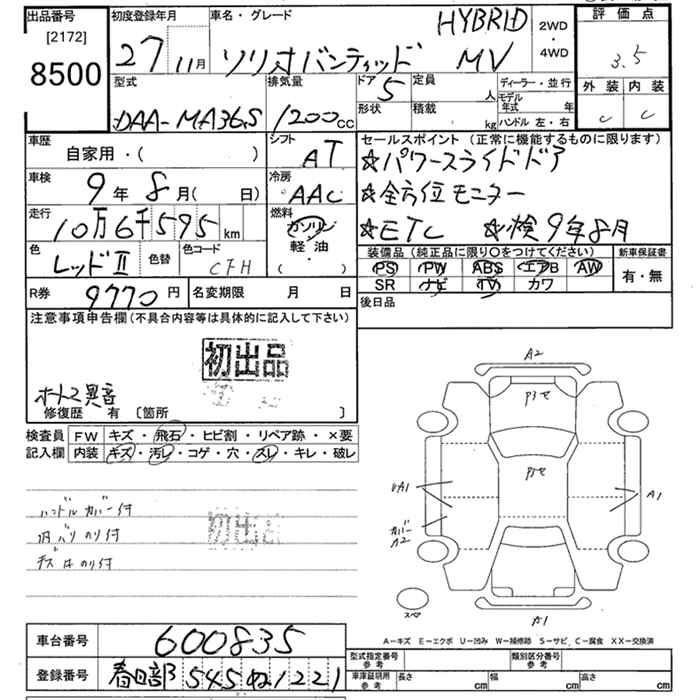 出品番号
[2172]
8500
初度登録年月
27 11月
車名・グレード
ソリオバンディッド
HYBRID
MV
2WD
・
4WD
評価点
3.5
外装 内装
C C
型式
DAA-MA36S
排気量
1200cc
ドア 5
形状
定員 人
積載 kg
ディーラー・並行
モデル年式 年
ハンドル 左・右
車歴
自家用・( )
シフト
AT
車検
9年 8月( 日)
冷房
AAC
走行
10万6千595km
燃料
ガソリン
軽・油
( ・ )
色
レッドⅡ
色替
色コード
CFH
R券
9770円
名変期限 月 日
セールスポイント (正常に機能するものに限ります)
☆パワースライドドア
☆全方位モニター
☆ETC ☆検9年8月
装備品 (純正品に限り〇をつけてください)
新車保証書
PS PW ABS エアB AW
SR ナビ TV カワ
有・無
後日品
注意事項申告欄 (不具合内容等は具体的に記入して下さい)
初出品
オートマ異音
修復歴 有 〔箇所 〕
検査員
記入欄
FW キズ・飛石・ヒビ割・リペア跡・×要
内装 キズ・汚レ・コゲ・穴・スレ・キレ・破レ
ハンドルカバー付
初出品
A2
Pヨセ
Pヨセ
UA1
カバー
A2
A1
スペア
A1
A-キズ E-エクボ U-凹み W-補修跡 S-サビ C-腐食 XX-交換済
車台番号
600835
登録番号
春日部 545 ね1221
型式指定番号
参考
類別区分番号
参考
車庫証明用
参考
長さ cm
幅 cm
高さ cm